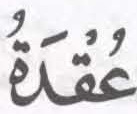 عُقْدَةُ